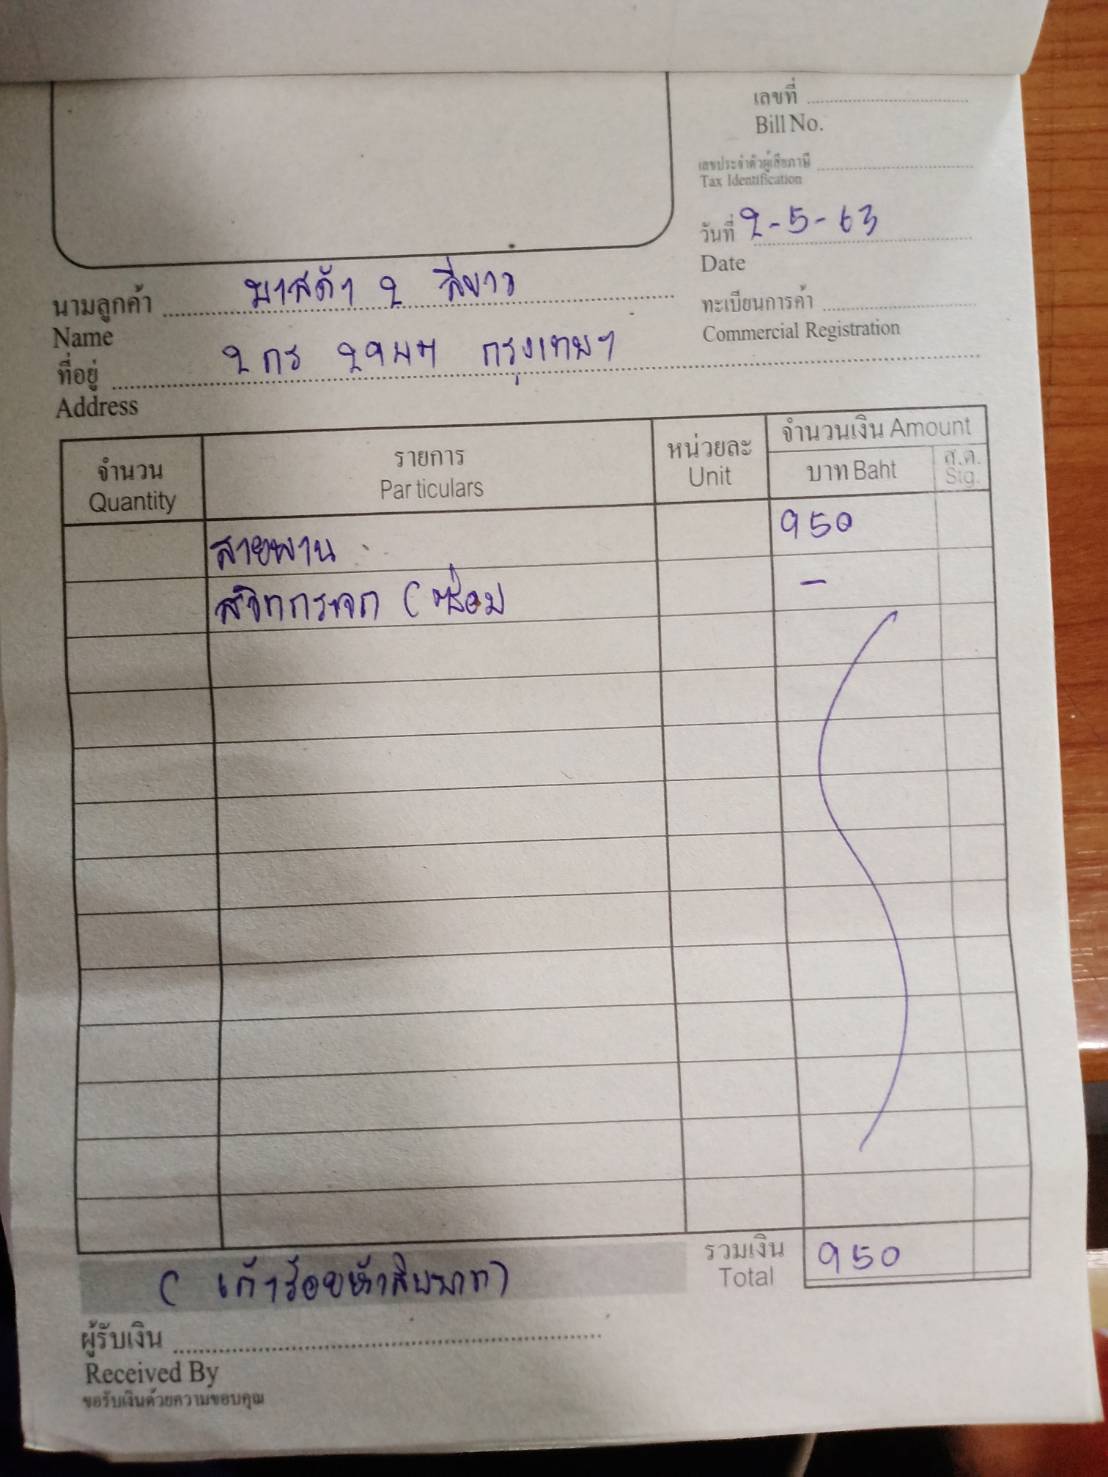 เลขที่
Bill No.
เลขประจำตัวผู้เสียภาษี
Tax Identification
วันที่ 2-5-63
Date
นามลูกค้า มาสด้า 2 สีขาว
Name
ทะเบียนการค้า
Commercial Registration
ที่อยู่ 2 กร กรุงเทพฯ
Address
จำนวน รายการ หน่วยละ จำนวนเงิน Amount
Quantity Particulars Unit บาท Baht ส.ต. Stg.
สายพาน 950
สวิทกระจก (ซ่อม -
(เก้าร้อยห้าสิบบาท) รวมเงิน 950
Total
ผู้รับเงิน
Received By
ขอรับเงินด้วยความขอบคุณ